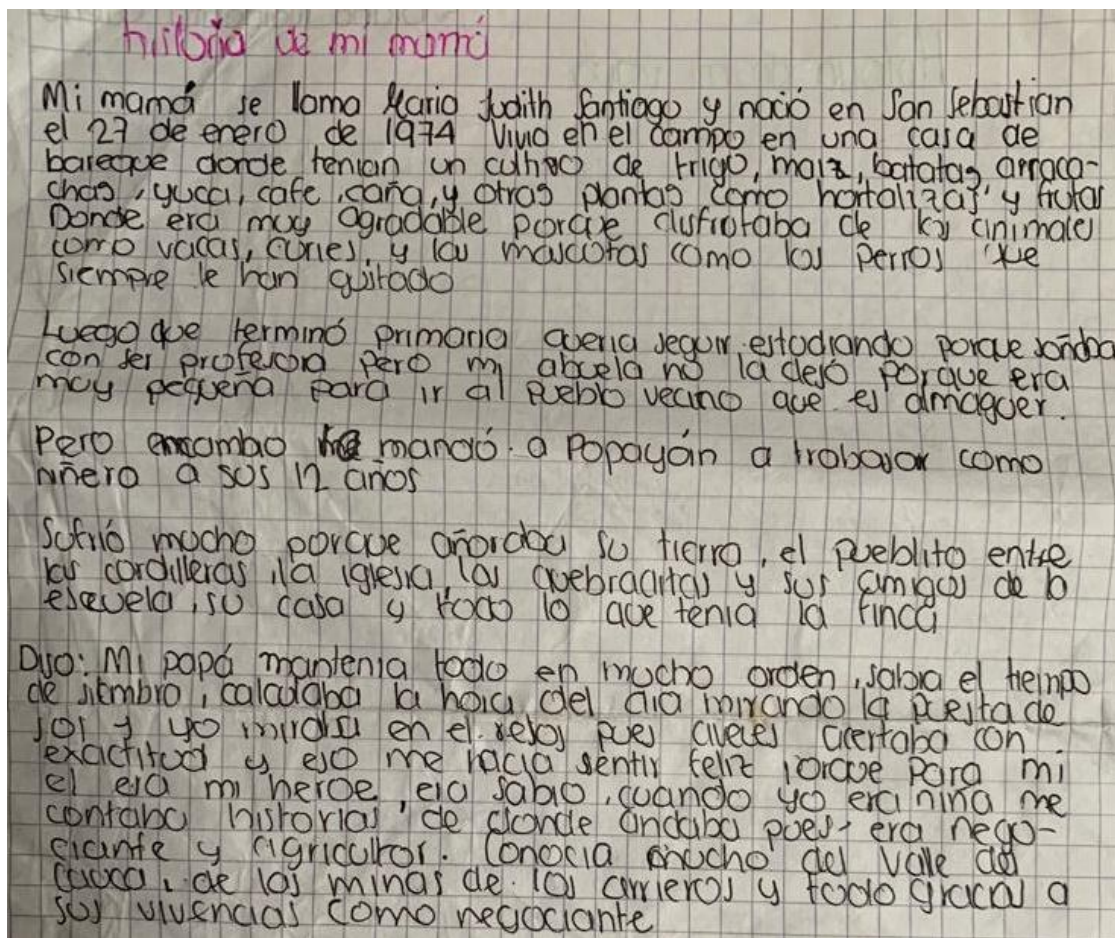 historia de mi mamá
Mi mamá se llama Maria Judith Santiago y nació en San Sebastian
el 27 de enero de 1974 Vivia en el campo en una casa de
bareque donde tenian un cultivo de trigo, maiz, batatas arraca-
chas, yuca, cafe, caña, y otras plantas como hortalizas, y frutas
Donde era muy agradable porque disfrutaba de los animales
como vacas, curies, y las mascotas como los perros que
siempre le han gustado
Luego que terminó primaria queria seguir estudiando porque soñaba
con ser profesora pero mi abuela no la dejó porque era
muy pequeña para ir al Pueblo vecino que es almaguer.
Pero encambio la mandó a Popayán a trabajar como
niñera a sus 12 años
Sufrió mucho porque añoraba su tierra, el pueblito entre
las cordilleras, la iglesia, las quebraditas y sus amigas de la
escuela, su casa y todo lo que tenia la finca
Dijo: Mi papá mantenia todo en mucho orden, sabia el tiempo
de siembra, calculaba la hora del dia mirando la puesta de
sol y yo miraba en el reloj pues aveces acertaba con
exactitud y eso me hacia sentir feliz porque para mi
el era mi heroe, era sabio, cuando yo era niña me
contaba historias de donde andaba pues era nego-
ciante y agricultor. Conocia mucho del valle del
cauca, de las minas de los arrieros y todo gracias a
sus vivencias como negociante